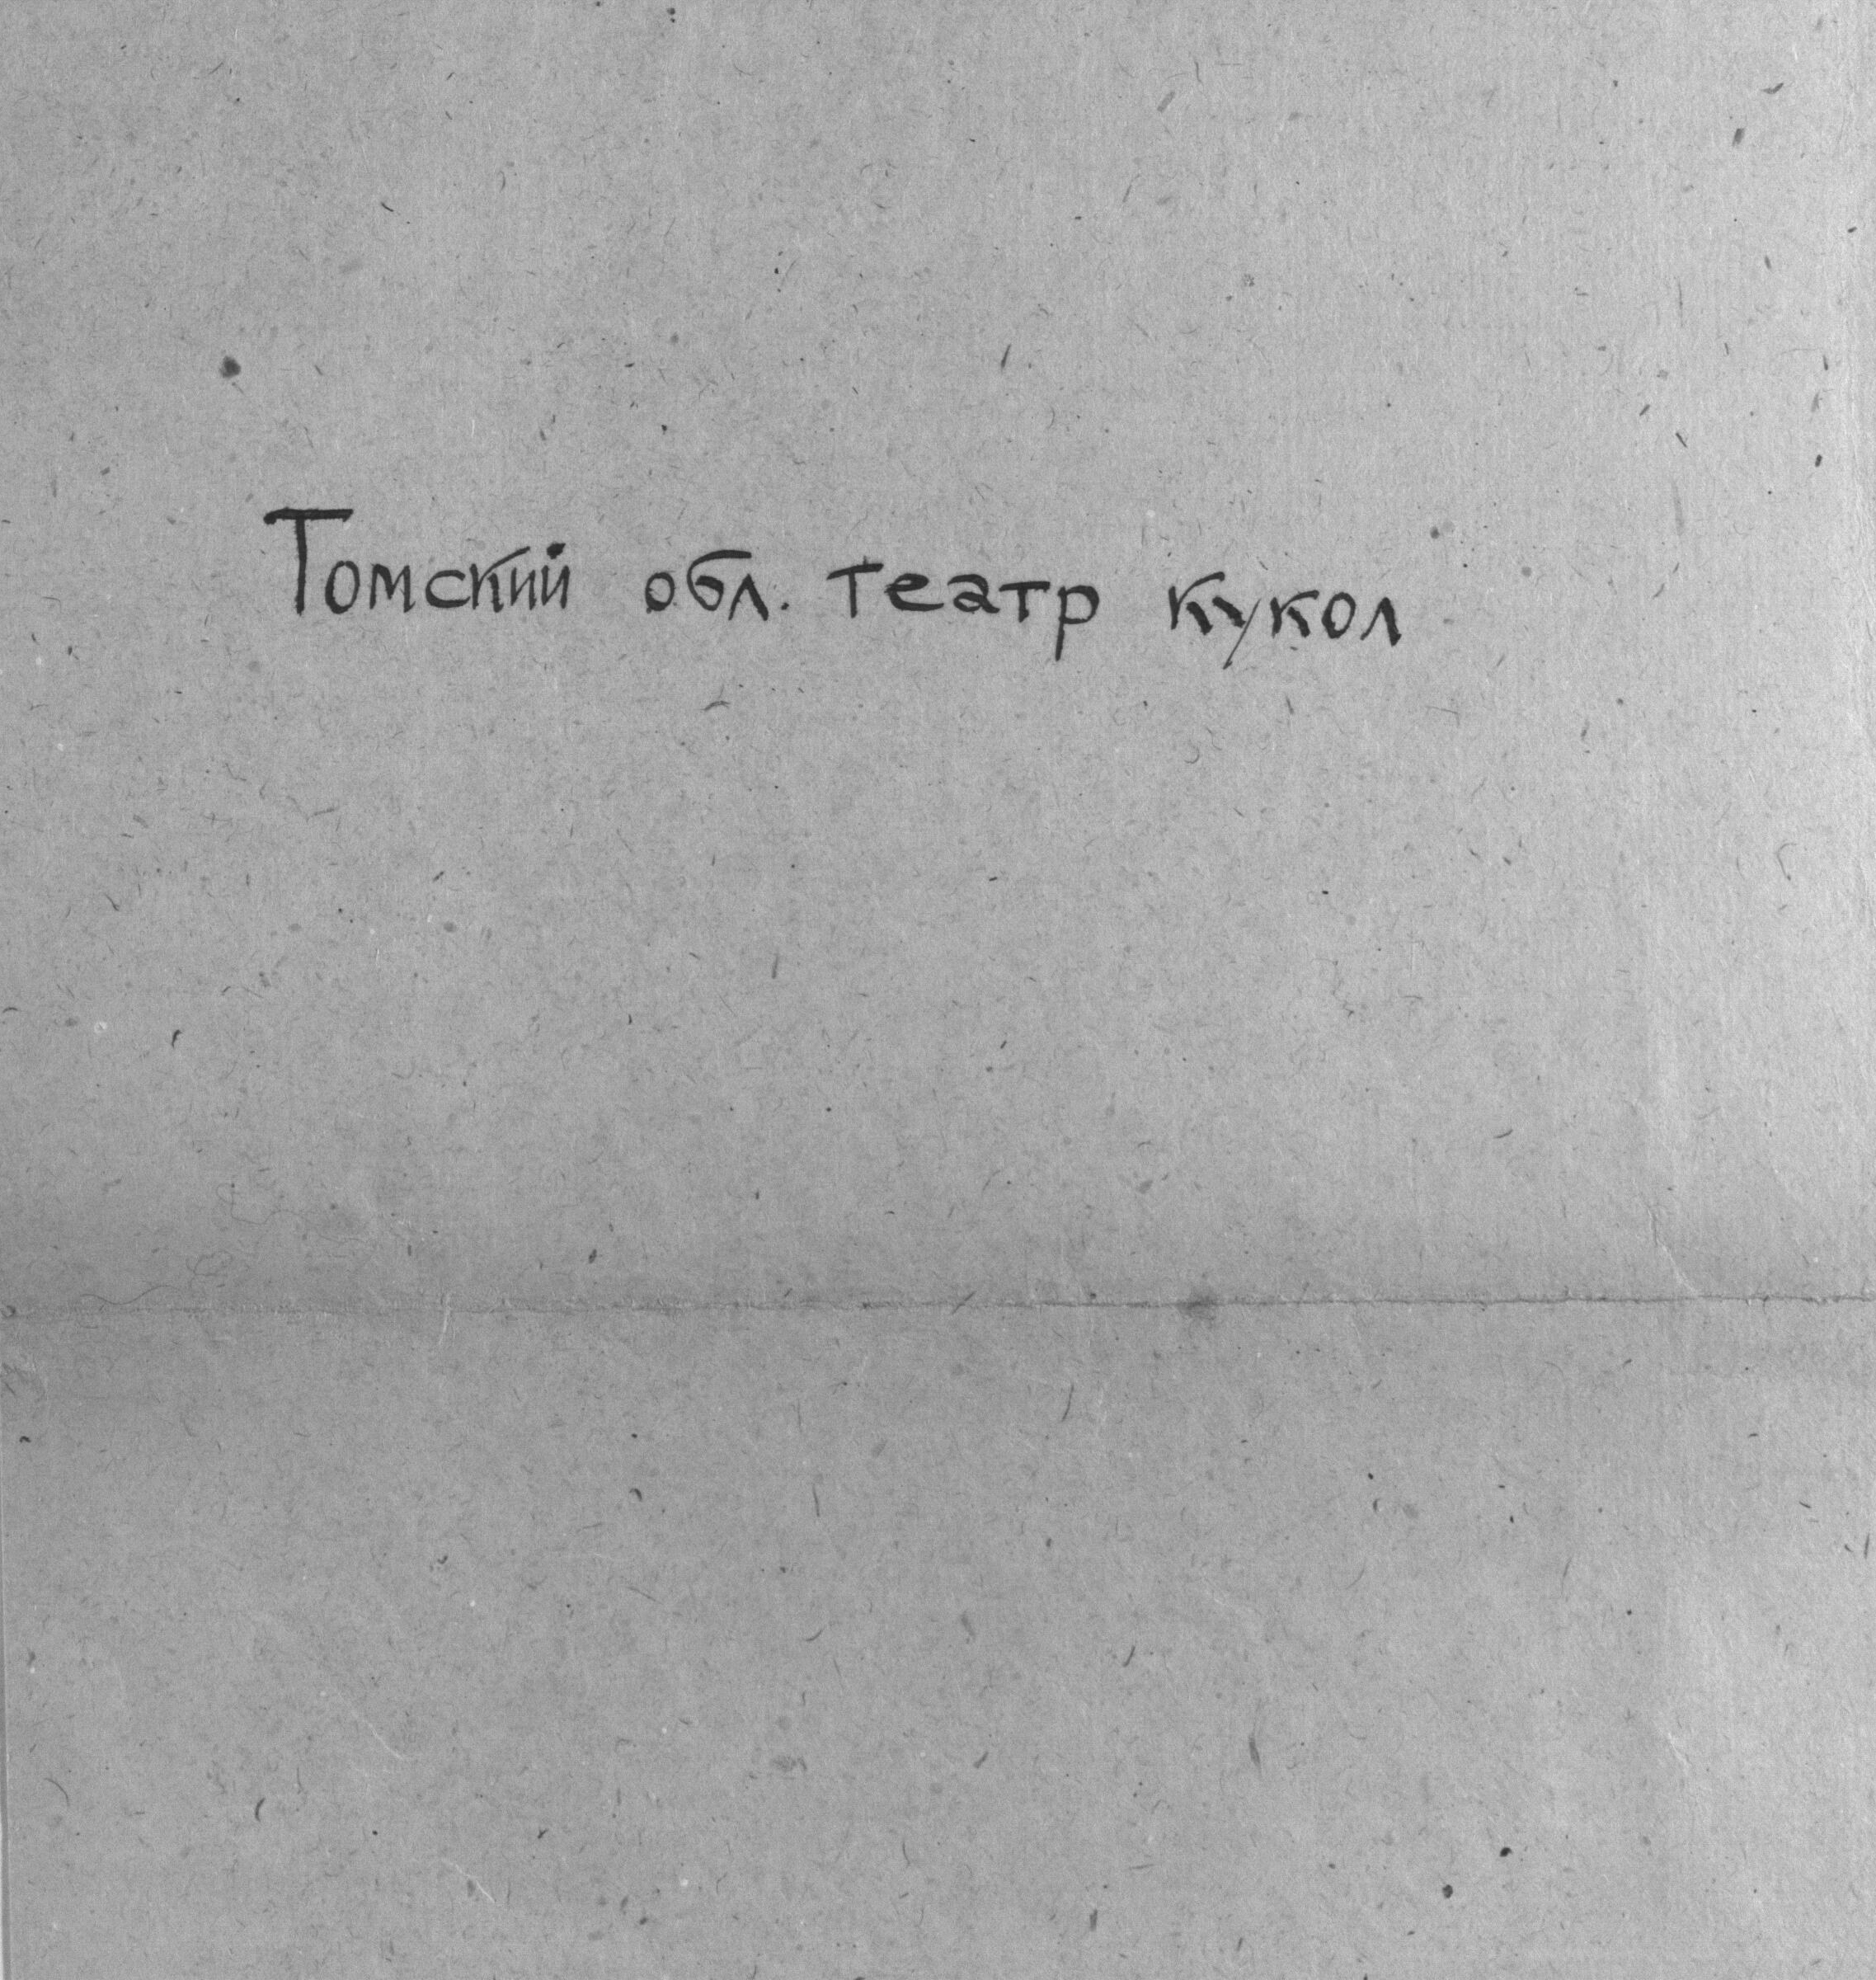 Томский обл. театр кукол